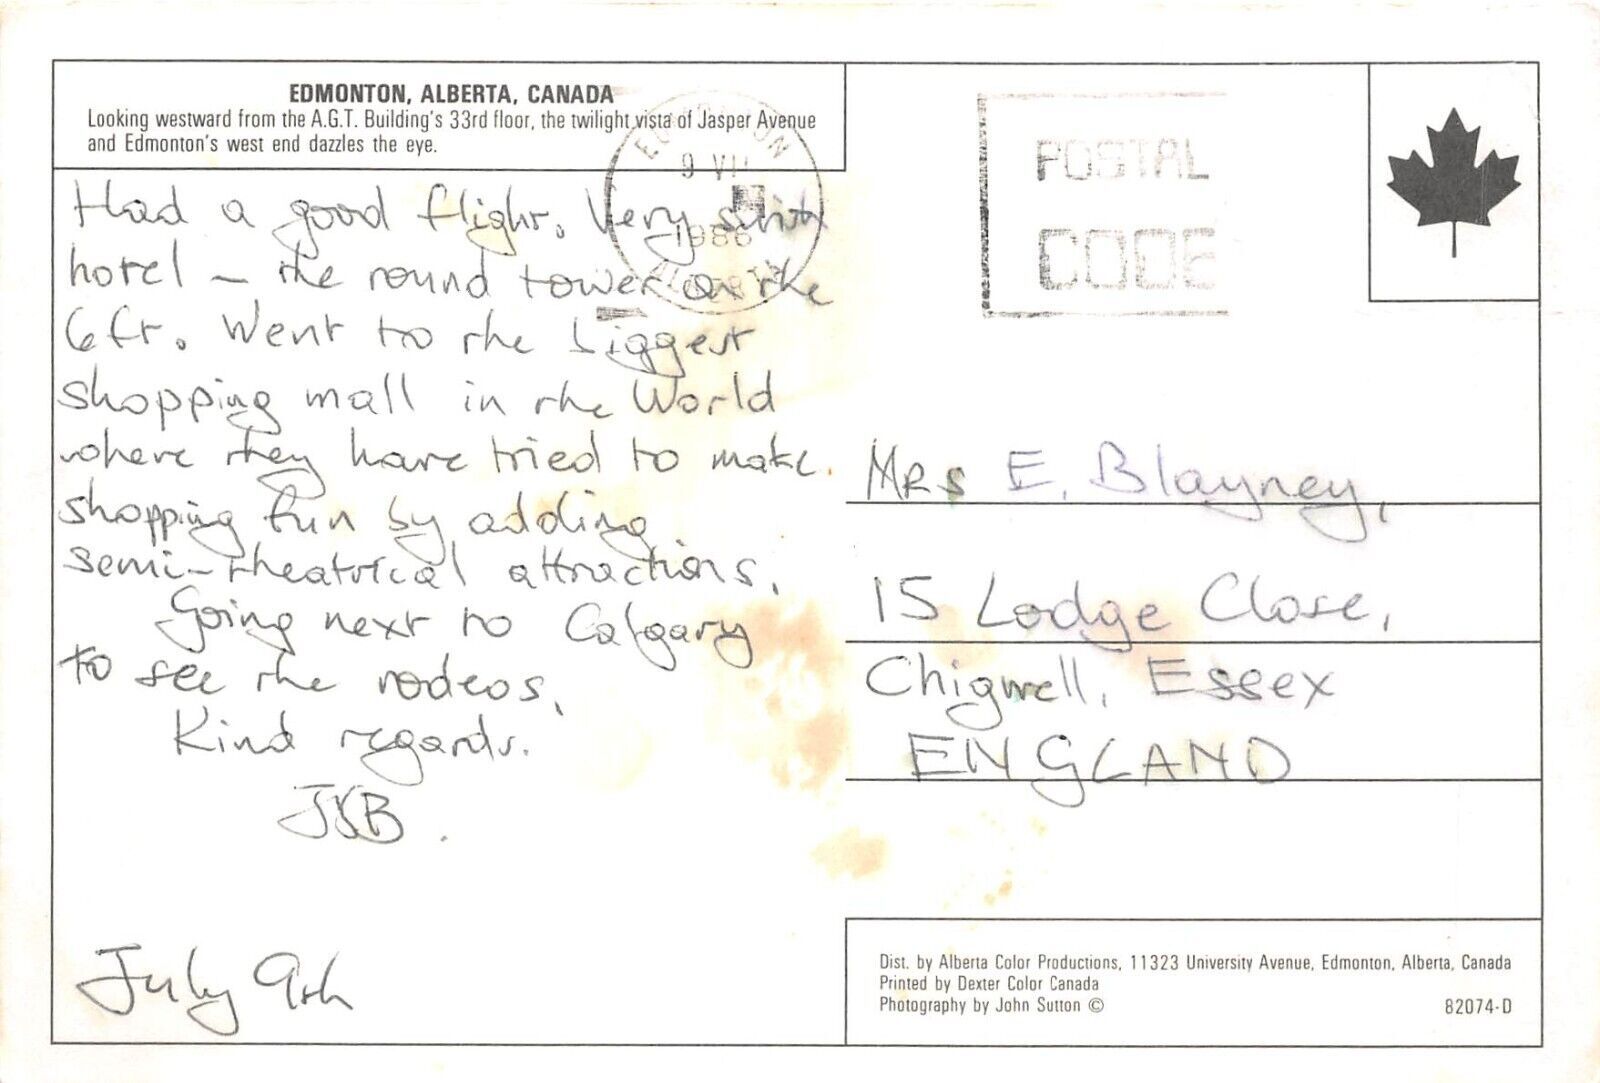 EDMONTON, ALBERTA, CANADA
Looking westward from the A.G.T. Building's 33rd floor, the twilight vista of Jasper Avenue
and Edmonton's west end dazzles the eye.
EDMONTON
9 VII
1986
ALBERTA
POSTAL
CODE
Had a good flight. Very
hotel – the round tower on the
left. Went to the biggest
shopping mall in the World
where they have tried to make
shopping fun by adding
semi-theatrical attractions.
Going next to Calgary
to see the rodeos.
Kind regards.
JSB.
July 9th
Mrs E. Blayney,
15 Lodge Close,
Chigwell, Essex
ENGLAND
Dist. by Alberta Color Productions, 11323 University Avenue, Edmonton, Alberta, Canada
Printed by Dexter Color Canada
Photography by John Sutton ©
82074-D